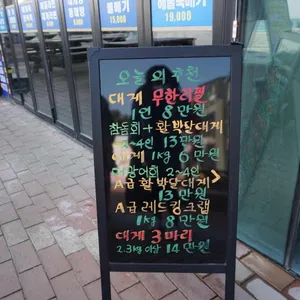 물메기
15,000
해물뚝배기
10,000
오늘의 추천
대게 무한리필
1인 8만원
참돔회 + 활 박달대게
2~4인 13만원
대게 1kg 6만원
대방어회 2~4인
A급 활 박달대게
13만원
A급 레드킹크랩
1kg 8만원
대게 3마리
2.3kg 이상 14만원